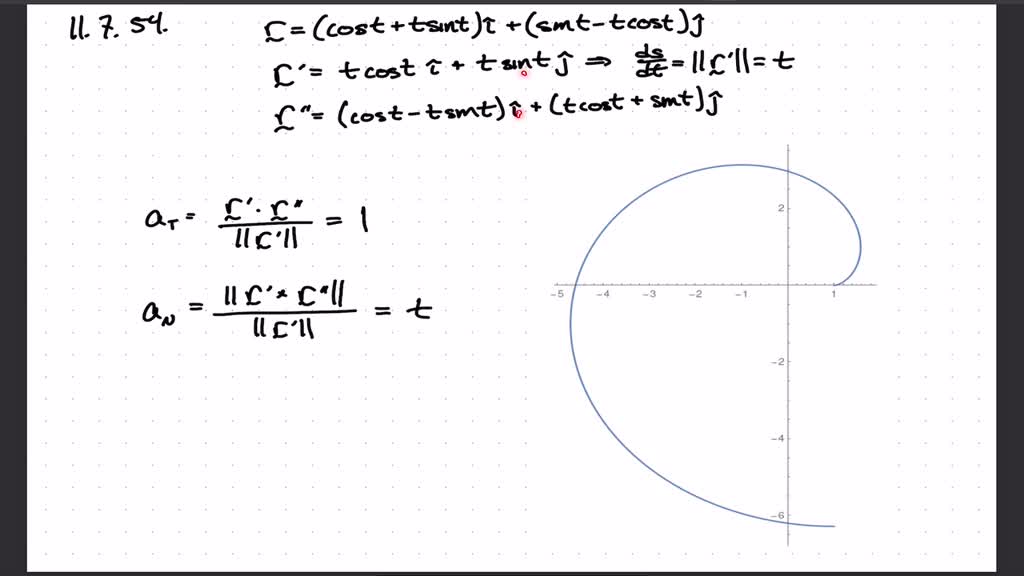 11. 7. 54. r = (cost + tsint) î + (sint - tcost) ĵ
r' = t cost î + t sint ĵ ⇒ ds/dt = ||r'|| = t
r" = (cost - tsint) î + (tcost + sint) ĵ
a_T = r' · r" / ||r'|| = 1
a_N = ||r' × r"|| / ||r'|| = t
2
-5 -4 -3 -2 -1 1
-2
-4
-6